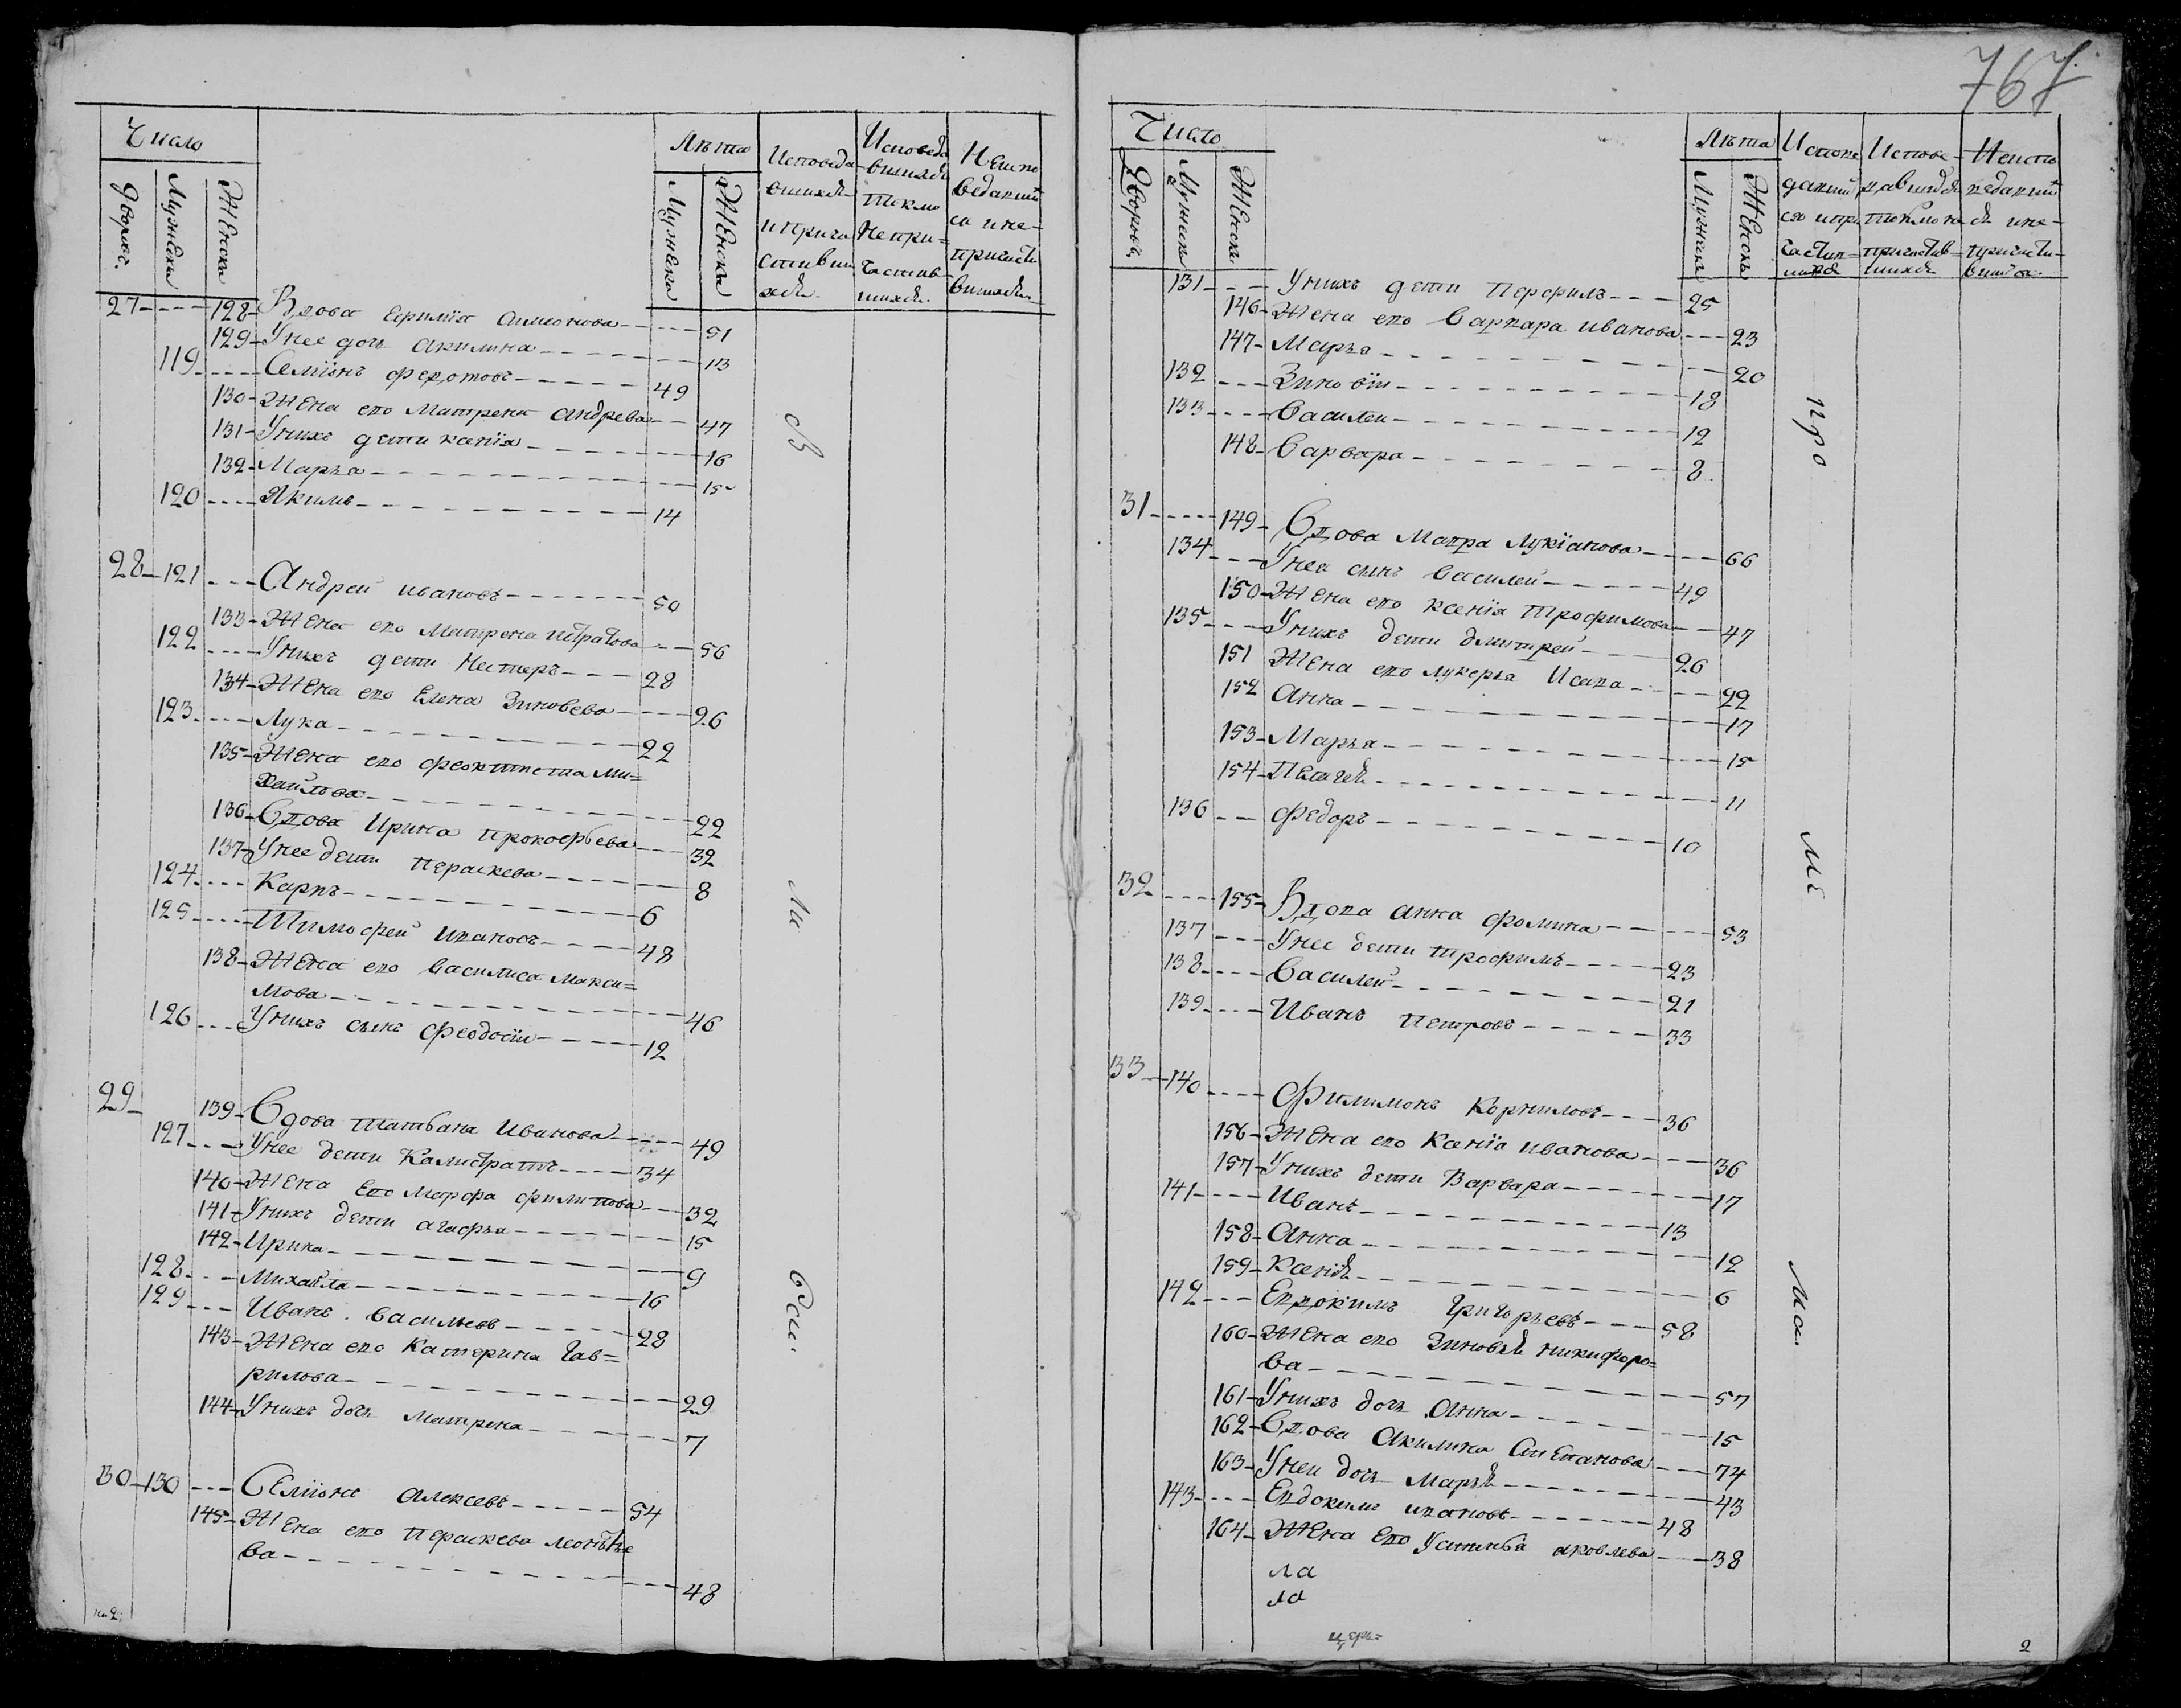 767
Число
Лѣта
Исповеда
вшихся
и прича
стивши
хся
Исповеда
вшихся
токмо
не при=
частив
шихся
Неиспо
ведавши
ся и не
причасти
вшихся
Дворовъ
Мужеска
Женска
Мужеска
Женска
27 128 Вдова Ефимія Симеонова 51
129 У нее дочь Акилина 13
119 Семіонъ Федотовъ 49
130 Жена его Матрена Андрева 47
131 У нихъ дети Ксенія 16
132 Марья 15
120 Якимъ 14
28 121 Андрей Ивановъ 50
133 Жена его Матрена 56
122 У нихъ дети Нестеръ 28
134 Жена его Елена Зиновева 26
123 Лука 22
135 Жена его Феоктиста Ми=
хайлова 22
136 Вдова Ирина Прокофьева 32
137 У нее дети Пераскева 8
124 Карпъ 6
125 Тимофей Ивановъ 48
138 Жена его Василиса Макси=
мова 46
126 У нихъ сынъ Феодосіи 12
29 139 Вдова Татьяна Иванова 49
127 У нее дети Калистратъ 34
140 Жена его Марфа Филипова 32
141 У нихъ дети Агафья 15
142 Ирина 9
128 Михайла 16
129 Иванъ Васильевъ 28
143 Жена его Катерина Гав=
рилова 29
144 У нихъ дочь Матрена 7
30 130 Семіонъ Алексевъ 54
145 Жена его Пераскева Леонтье
ва 48
В
ли
веи
Число
Лѣта
Дворовъ
Мужеска
Женска
Мужеска
Женска
131 У нихъ дети Перфилъ 25
146 Жена его Варвара Иванова 23
147 Марья 20
132 Зиновіи 18
133 Василеи 12
148 Варвара 8
31 149 Вдова Мавра Лукіанова 66
134 У нея сынъ Василей 49
150 Жена его Ксенія Трофимова 47
135 У нихъ дети Дмитрей 26
151 Жена его Лукерья Исаева 22
152 Анна 17
153 Марья 15
154 Пелагея 11
136 Федоръ 10
32 155 Вдова Анна Фомина 53
137 У нее дети Трофимъ 23
138 Василей 21
139 Иванъ Петровъ 33
33 140 Филимонъ Корниловъ 36
156 Жена его Ксенія Иванова 36
157 У нихъ дети Варвара 17
141 Иванъ 13
158 Анна 12
159 Ксенія 6
142 Евдокимъ Григорьевъ 58
160 Жена его Зиновья Никифоро=
ва 57
161 У нихъ дочь Анна 15
162 Вдова Акилина Степанова 74
163 У неи дочь Марья 43
143 Евдокимъ Ивановъ 48
164 Жена его Устинья Яковлева 38
ла
ла
церь=
2